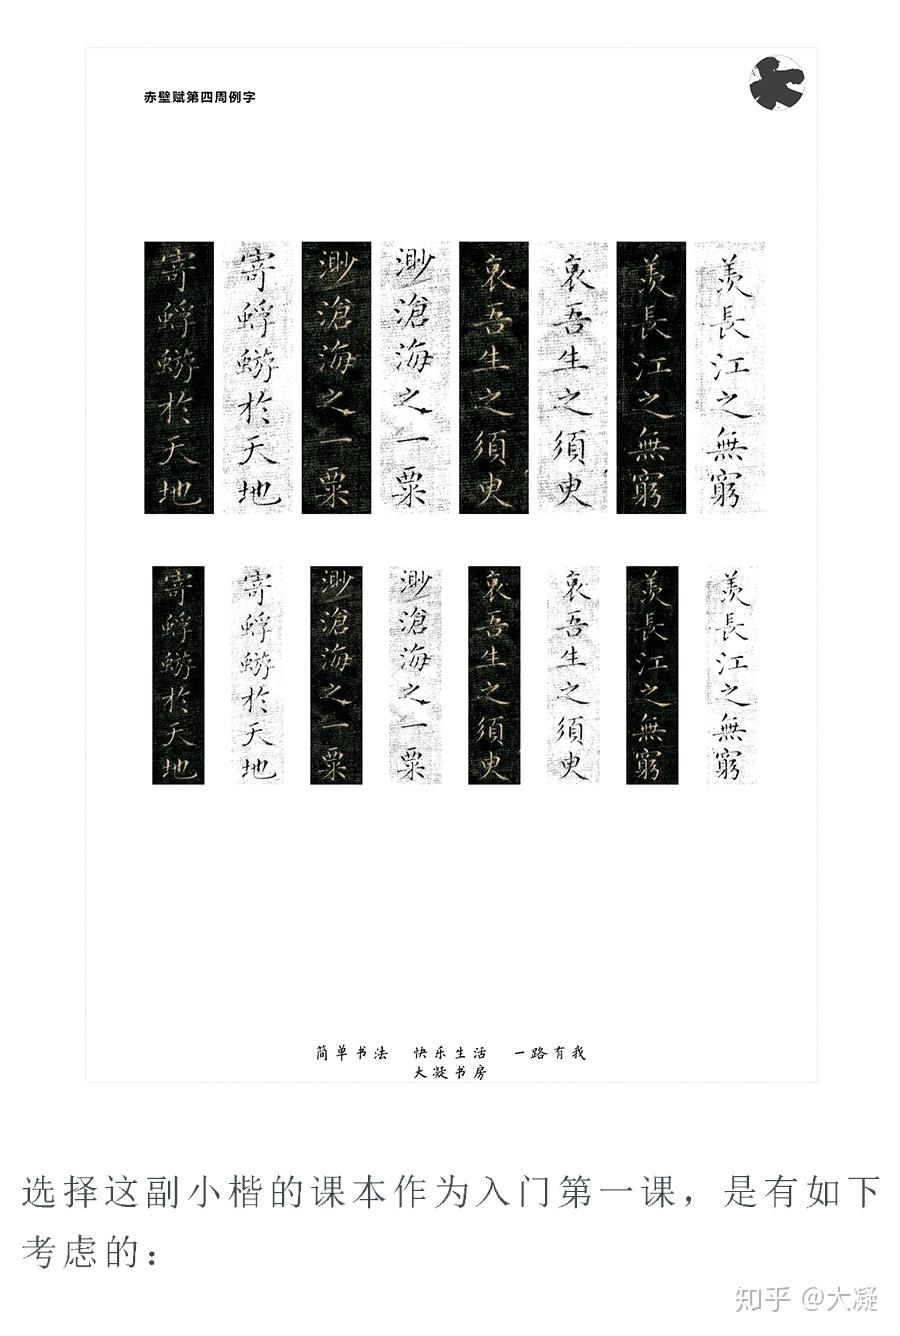 赤壁赋第四周例字
寄蜉蝣於天地
寄蜉蝣於天地
渺滄海之一粟
渺滄海之一粟
哀吾生之須臾
哀吾生之須臾
羨長江之無窮
羨長江之無窮
寄蜉蝣於天地
寄蜉蝣於天地
渺滄海之一粟
渺滄海之一粟
哀吾生之須臾
哀吾生之須臾
羨長江之無窮
羨長江之無窮
简单书法 快乐生活 一路有我
大凝书房
选择这副小楷的课本作为入门第一课，是有如下
考虑的：
知乎 @大凝